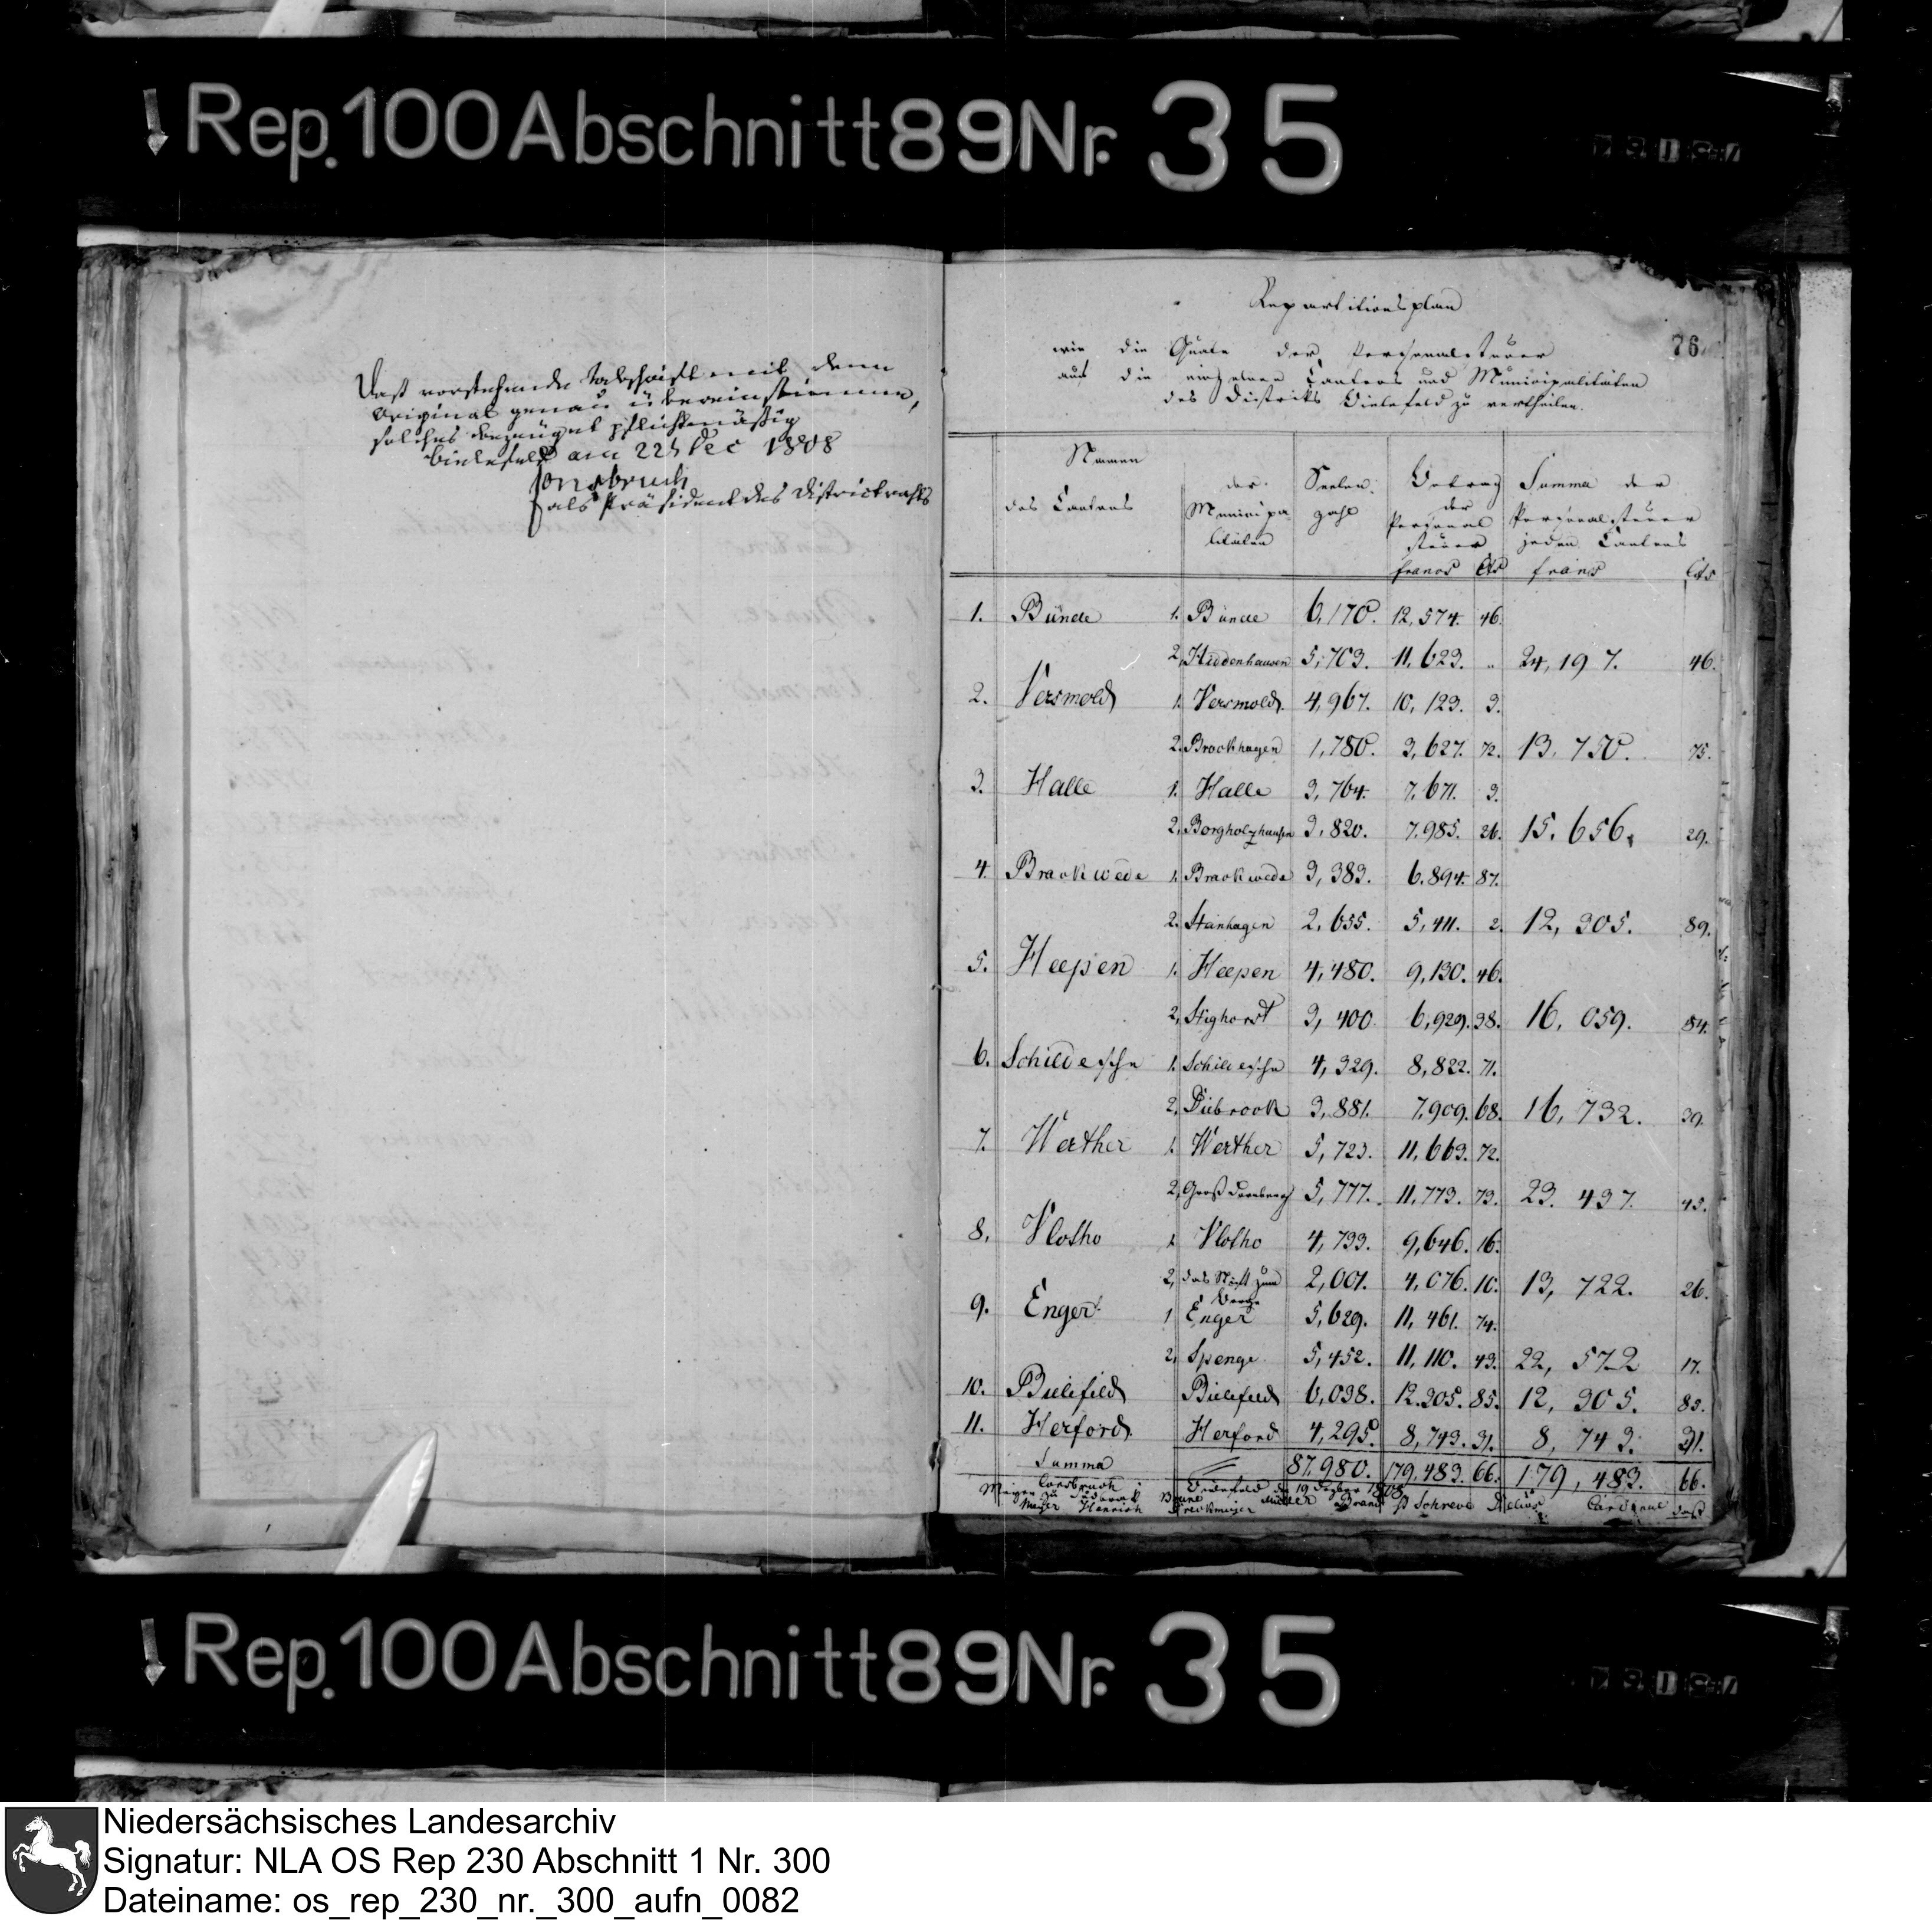 Rep. 100 Abschnitt 89 Nr. 35
Daß vorstehende Abschrift mit dem
Original genau übereinstimme,
solches bezeuget pflichtmäßig
Bielefeld am 22t Dec 1808
Consbruch
als Präsident des Districtraths
Repartitionsplan
76.
wie die Quote der Personalsteuer
auf die einzelnen Cantons und Municipalitäten
des Districts Bielefeld zu vertheilen.
Namen
des Cantons | der Municipalitäten | Seelenzahl | Betrag der Personalsteuer | Summa der Personalsteuer jeden Cantons
francs Cts francs Cts
1. Bünde 1. Bünde 6,170. 12,574. 46.
2. Hiddenhausen 5,703. 11,623. " 24,197. 46.
2. Versmold 1. Versmold 4,967. 10,123. 3.
2. Brockhagen 1,780. 3,627. 72. 13,750. 75.
3. Halle 1. Halle 3,764. 7,671. 3.
2. Borgholzhausen 3,820. 7,985. 26. 15,656. 29.
4. Brackwede 1. Brackwede 3,383. 6,894. 87.
2. Stainhagen 2,655. 5,411. 2. 12,305. 89.
5. Heepen 1. Heepen 4,480. 9,130. 46.
2. Stighorst 3,400. 6,929. 38. 16,059. 84.
6. Schildesche 1. Schildesche 4,329. 8,822. 71.
2. Diebrock 3,881. 7,909. 68. 16,732. 39.
7. Werther 1. Werther 5,723. 11,663. 72.
2. Groß Dornberg 5,777. 11,773. 73. 23,437. 45.
8. Vlotho 1. Vlotho 4,733. 9,646. 16.
2. das Stift zum Berge 2,001. 4,076. 10. 13,722. 26.
9. Enger 1. Enger 5,629. 11,461. 74.
2. Spenge 5,452. 11,110. 43. 22,572 17.
10. Bielefeld Bielefeld 6,038. 12,305. 85. 12,305. 85.
11. Herford Herford 4,295. 8,743. 31. 8,743. 31.
Summa 87,980. 179,483. 66. 179,483. 66.
Consbruch Bielefeld d 19 Dezbr 1808
Meyer Heinrich Müller Brand Schreve Delius
Rep. 100 Abschnitt 89 Nr. 35
Niedersächsisches Landesarchiv
Signatur: NLA OS Rep 230 Abschnitt 1 Nr. 300
Dateiname: os_rep_230_nr._300_aufn_0082